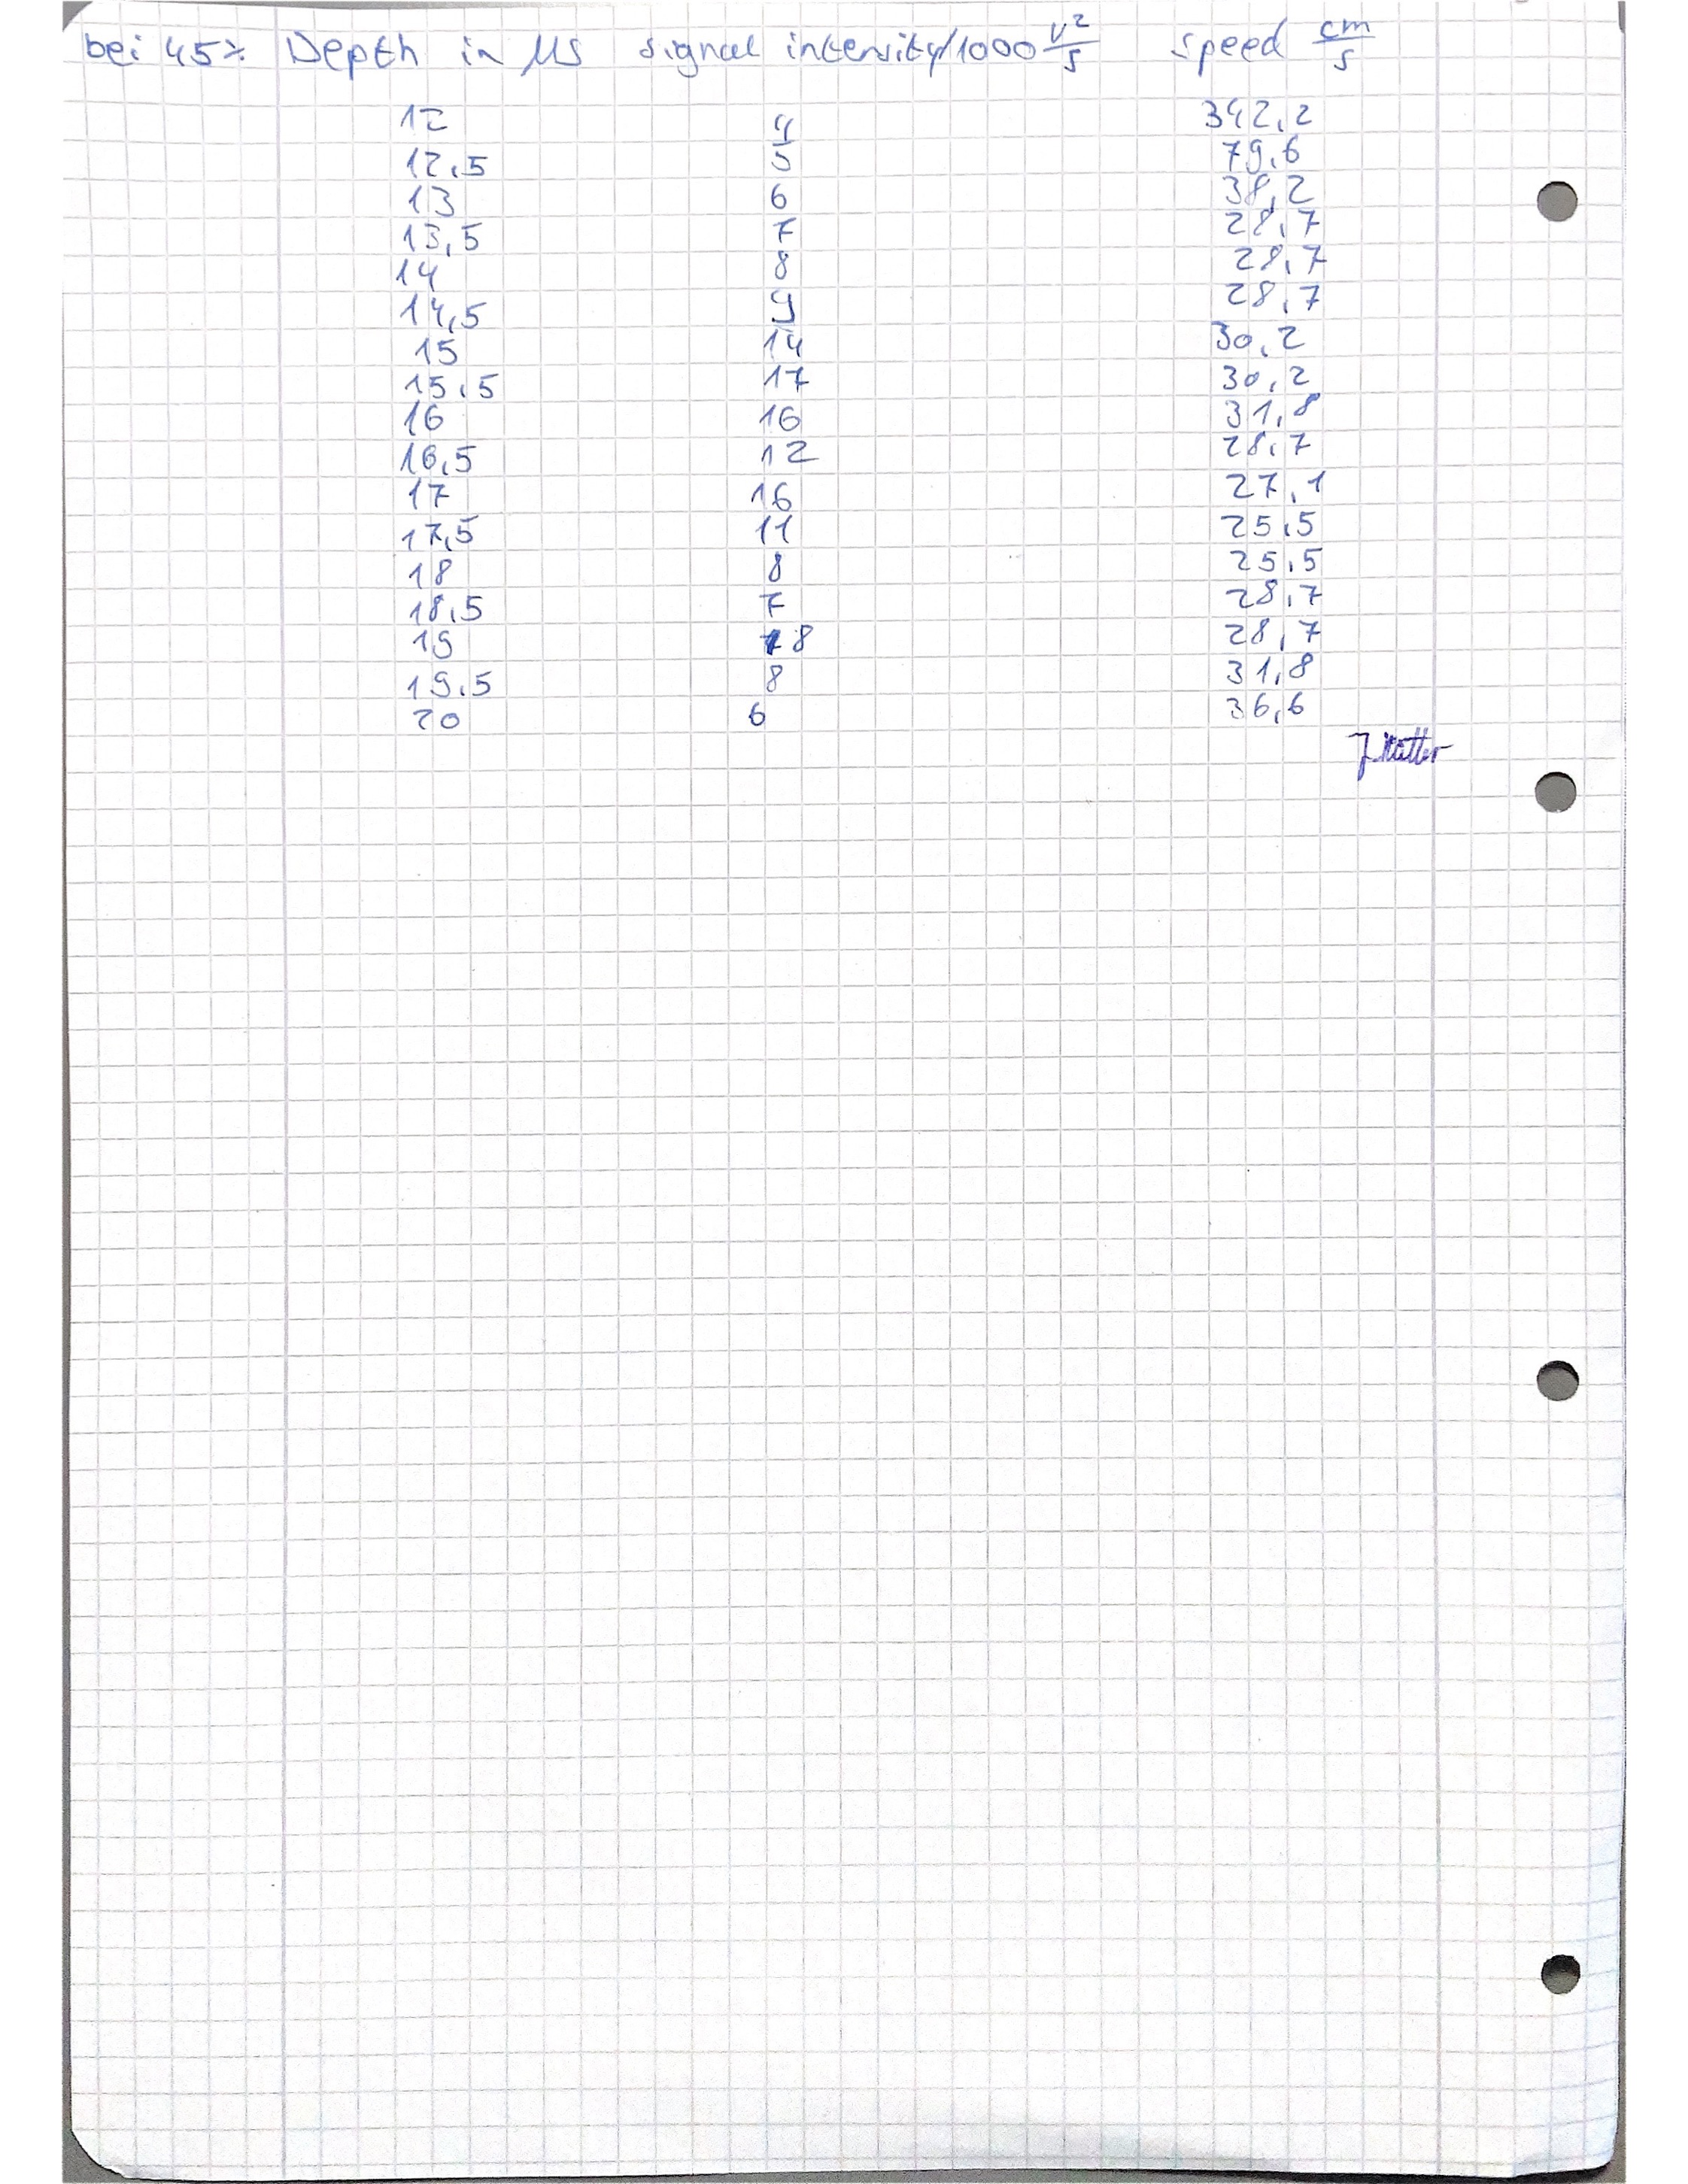 bei 45% Depth in µs signal intensity/1000 V²/s speed cm/s
12 4 342,2
12,5 5 79,6
13 6 38,2
13,5 7 28,7
14 8 28,7
14,5 9 28,7
15 14 30,2
15,5 17 30,2
16 16 31,8
16,5 12 28,7
17 16 27,1
17,5 11 25,5
18 8 25,5
18,5 7 28,7
19 8 28,7
19,5 8 31,8
20 6 36,6